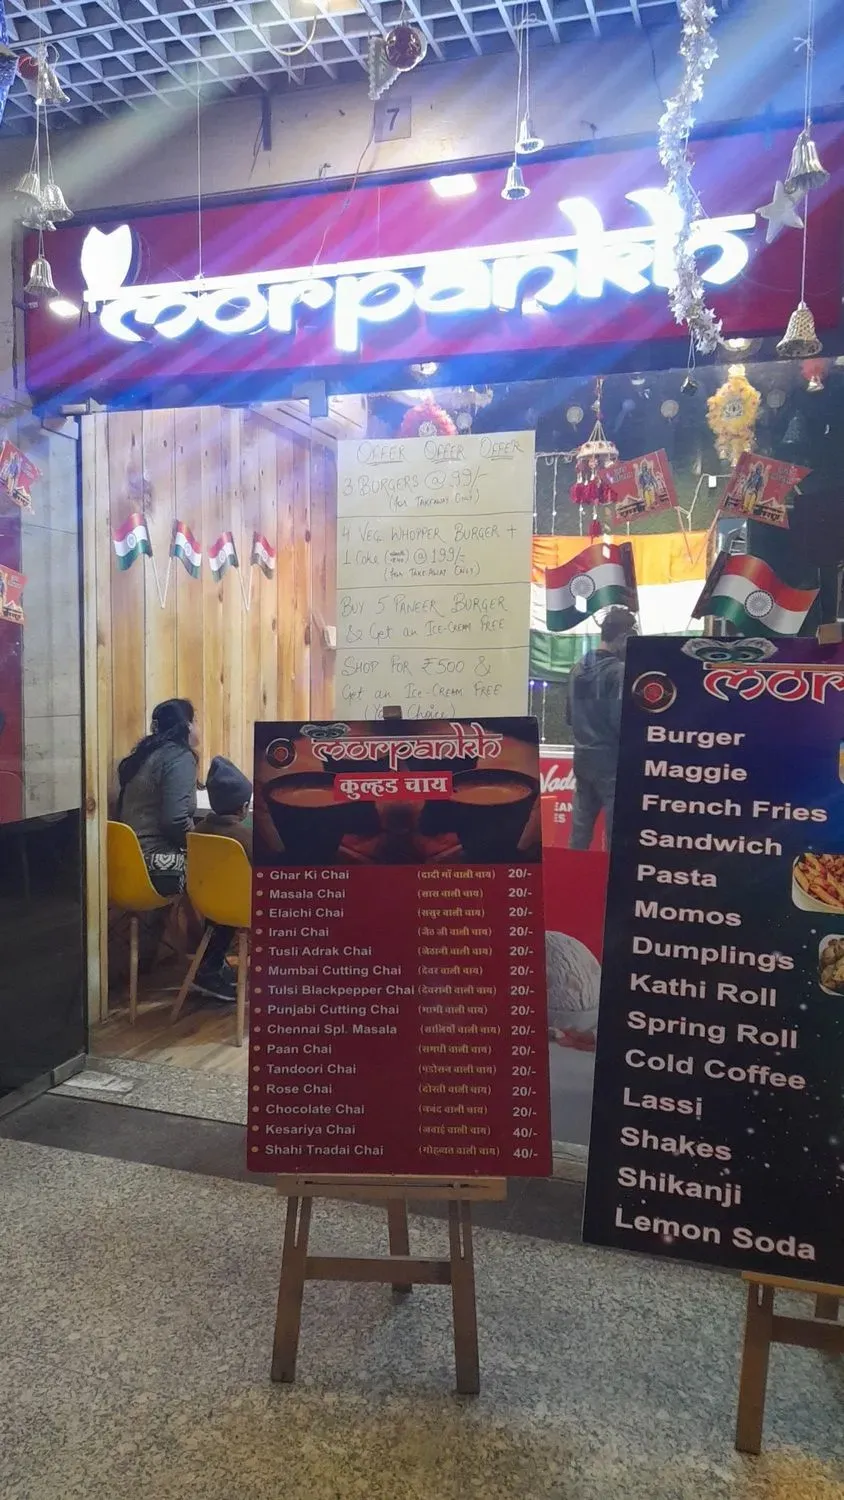 7
morpankh
OFFER OFFER OFFER
3 BURGERS @ 99/-
(for TAKEAWAY ONLY)
4 VEG. WHOPPER BURGER +
1 Coke @ 199/-
(for TAKEAWAY ONLY)
BUY 5 PANEER BURGER
& Get an ICE-CREAM FREE
SHOP FOR ₹500 &
Get an ICE-CREAM FREE
(Your Choice)
morpankh
कुल्हड चाय
Ghar Ki Chai (दादी माँ वाली चाय) 20/-
Masala Chai (सास वाली चाय) 20/-
Elaichi Chai (ससुर वाली चाय) 20/-
Irani Chai (जेठ जी वाली चाय) 20/-
Tusli Adrak Chai (जेठानी वाली चाय) 20/-
Mumbai Cutting Chai (देवर वाली चाय) 20/-
Tulsi Blackpepper Chai (देवरानी वाली चाय) 20/-
Punjabi Cutting Chai (भाभी वाली चाय) 20/-
Chennai Spl. Masala (सालियों वाली चाय) 20/-
Paan Chai (समधी वाली चाय) 20/-
Tandoori Chai (पडोसन वाली चाय) 20/-
Rose Chai (दोस्ती वाली चाय) 20/-
Chocolate Chai (ननद वाली चाय) 20/-
Kesariya Chai (जवाई वाली चाय) 40/-
Shahi Tnadai Chai (मोहब्बत वाली चाय) 40/-
Vadi
mor
Burger
Maggie
French Fries
Sandwich
Pasta
Momos
Dumplings
Kathi Roll
Spring Roll
Cold Coffee
Lassi
Shakes
Shikanji
Lemon Soda